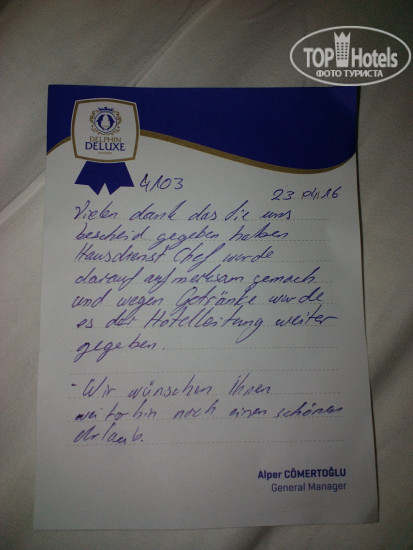 TOP Hotels
ФОТО ТУРИСТА
DELPHIN
DELUXE
4103
23.04.16
Vielen dank das Sie uns
bescheid gegeben haben
Hausdienst Chef wurde
darauf aufmerksam gemach
und wegen Getränke wurde
es der Hotelleitung weiter
gegeben.
- Wir wünschen Ihnen
weiterhin noch einen schönen
Urlaub.
Alper CÖMERTOĞLU
General Manager